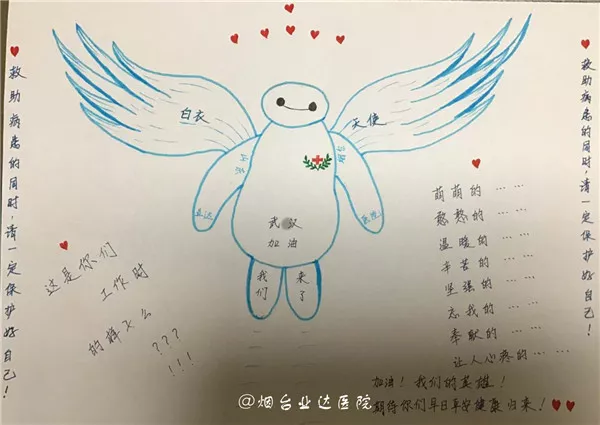 救助病患的同时,请一定保护好自己!
白衣
天使
业达
医院
武汉
加油
我们
来了
这是你们
工作时
的样子么
???
!!!
萌萌的……
憨憨的……
温暖的……
辛苦的……
坚强的……
忘我的……
奉献的……
让人心疼的……
加油!我们的英雄!
期待你们早日平安健康归来!
救助病患的同时,请一定保护好自己!
@烟台业达医院